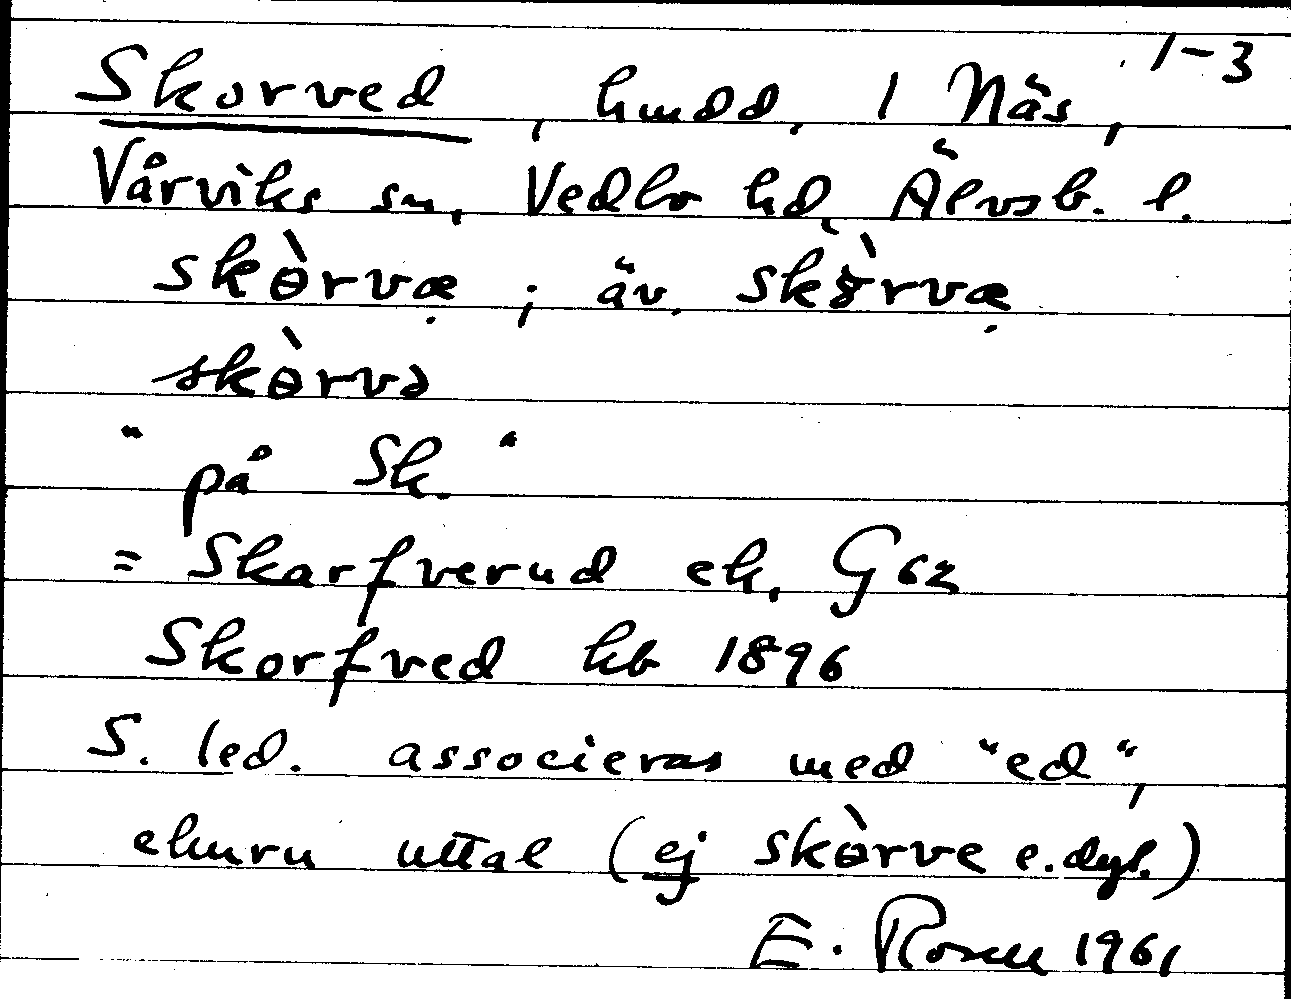 1-3
Skorved, hmdd. 1 Näs,
Vårviks sn, Vedbo hd, Älvsb. l.
skòrvæ; äv. skòrvæ
skòrvə
"på Sk."
= Skarfverud ek. G 62
Skorfved kb 1896
S. led. associeras med "ed",
ehuru uttal (ej skòrve e.dyl.)
E. Rosell 1961